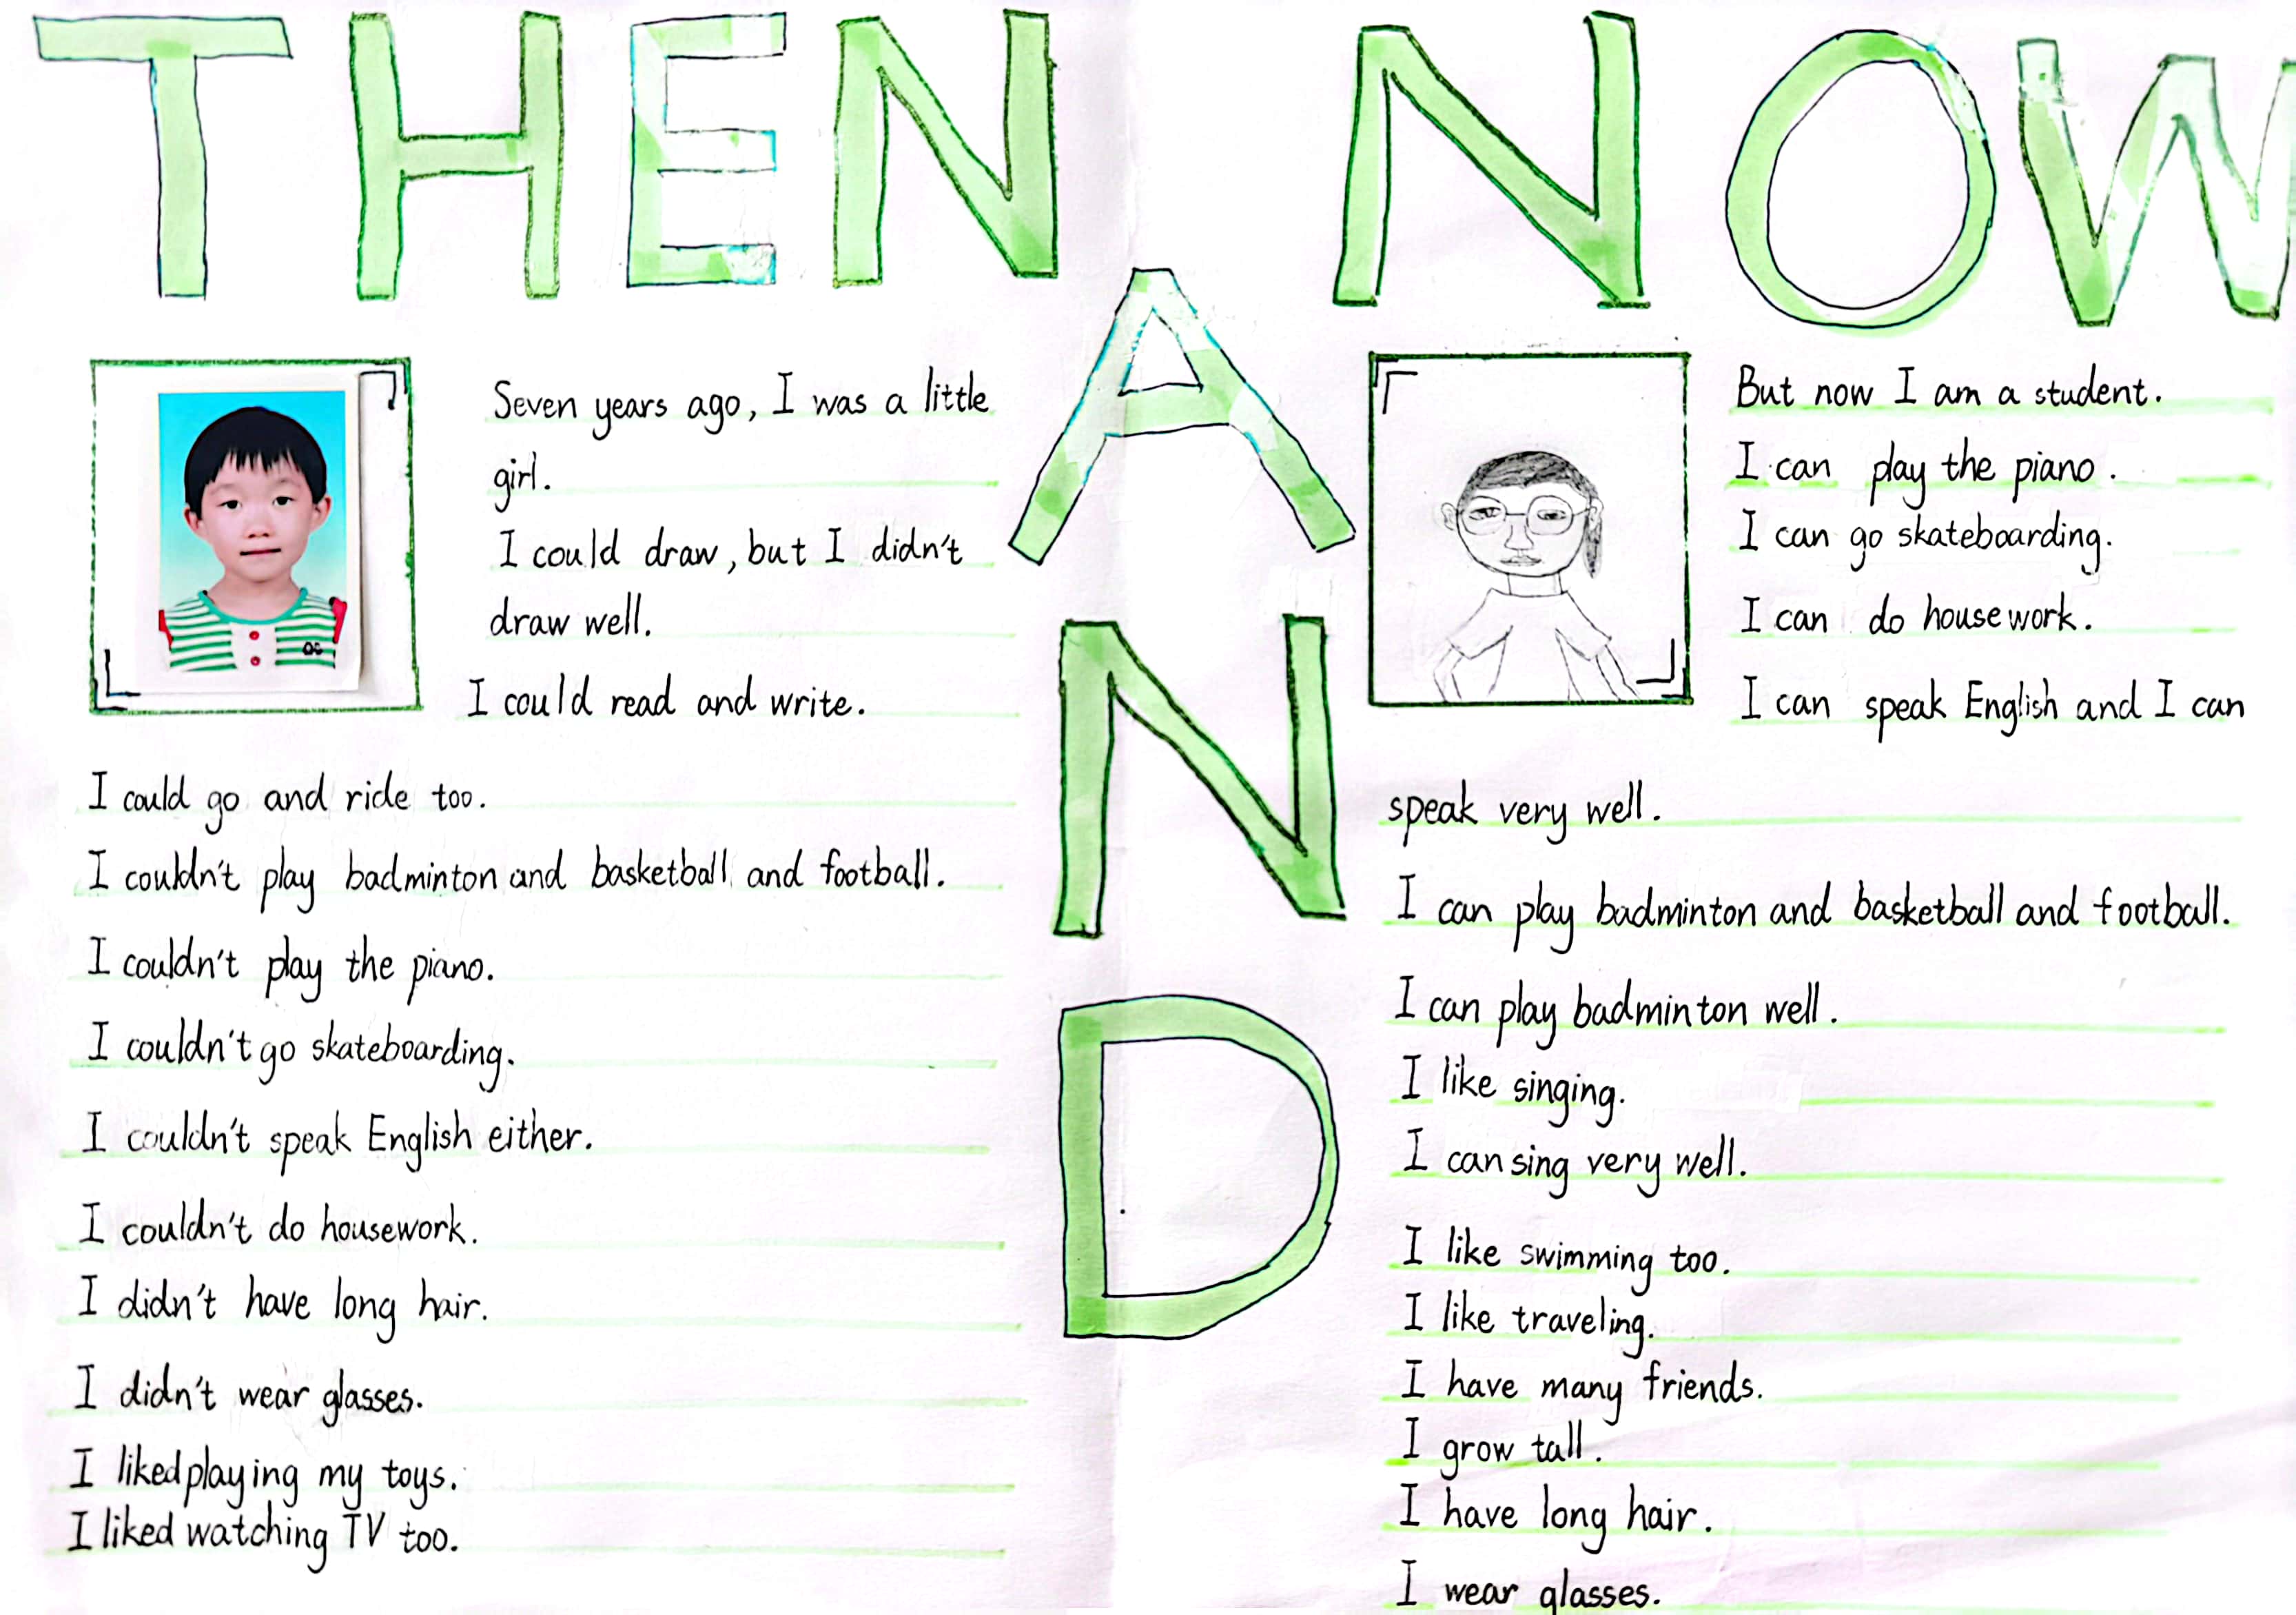 THEN
AND
NOW
Seven years ago, I was a little
girl.
I could draw, but I didn't
draw well.
I could read and write.
I could go and ride too.
I couldn't play badminton and basketball and football.
I couldn't play the piano.
I couldn't go skateboarding.
I couldn't speak English either.
I couldn't do housework.
I didn't have long hair.
I didn't wear glasses.
I liked playing my toys.
I liked watching TV too.
But now I am a student.
I can play the piano.
I can go skateboarding.
I can do housework.
I can speak English and I can
speak very well.
I can play badminton and basketball and football.
I can play badminton well.
I like singing.
I can sing very well.
I like swimming too.
I like traveling.
I have many friends.
I grow tall.
I have long hair.
I wear glasses.